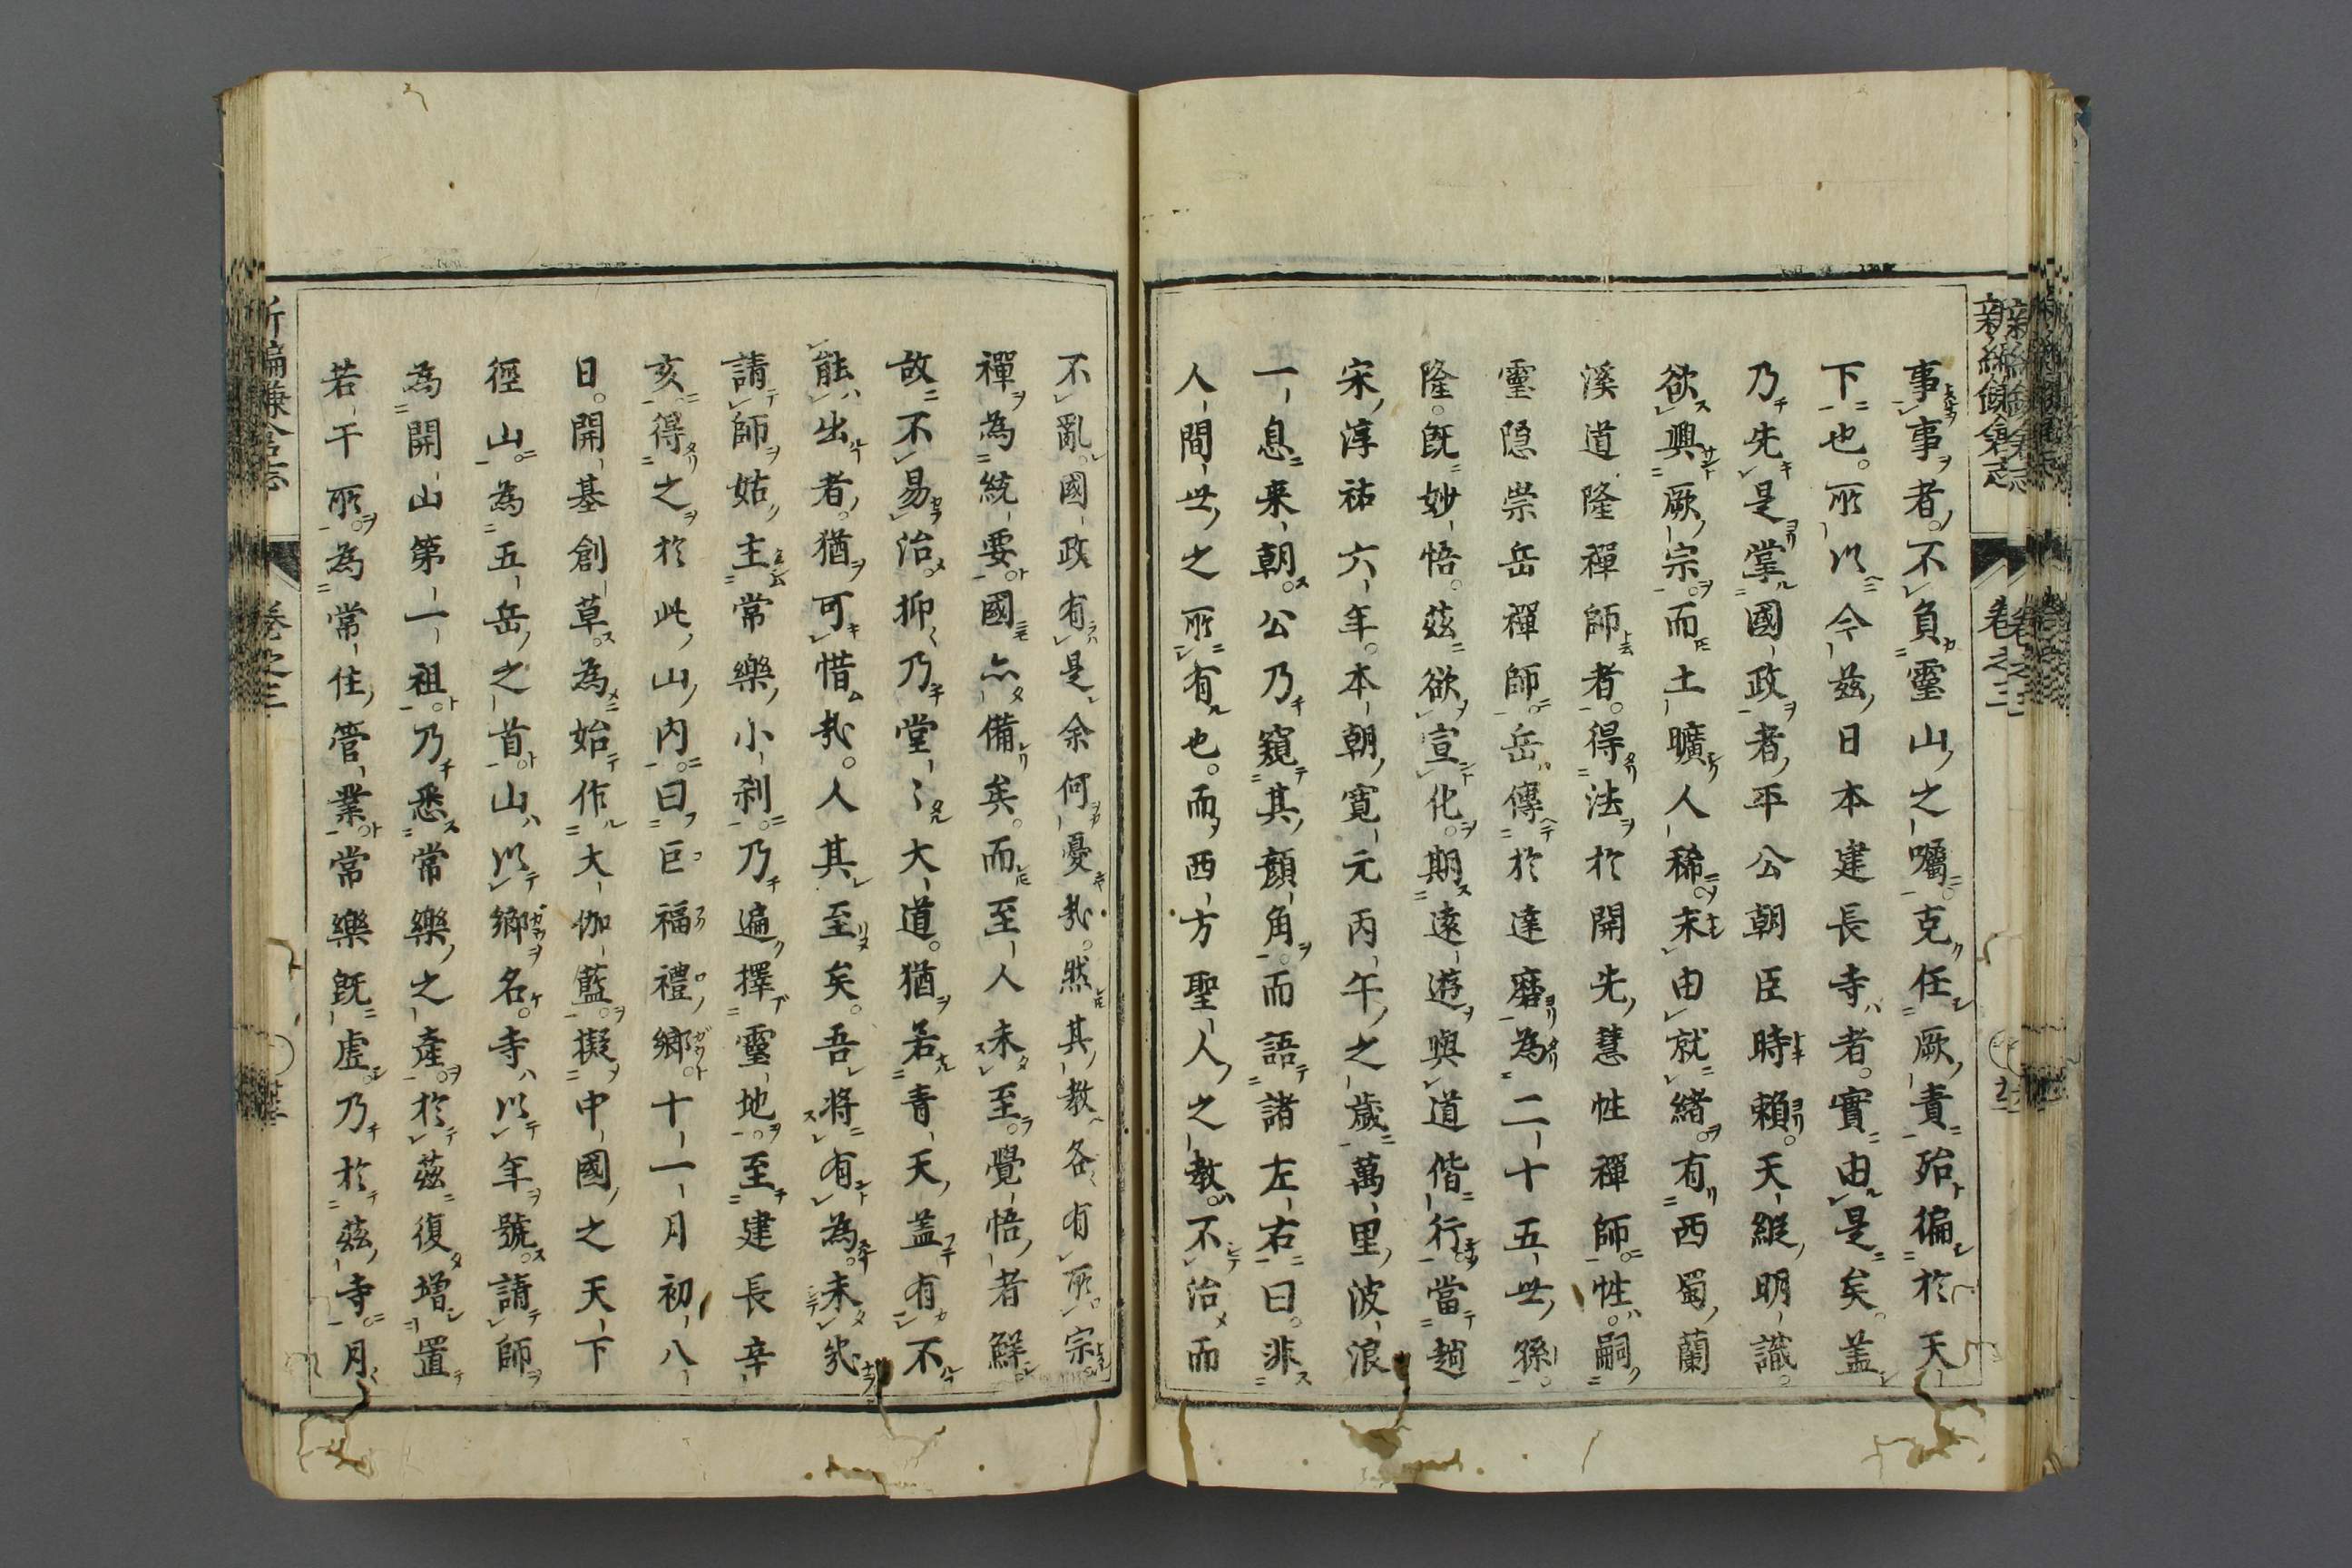 新編鎌倉志
卷之三
事事者不負靈山之囑克任厥責殆徧於天
下也所以今茲日本建長寺者實由是矣蓋
乃先是掌國政者平公朝臣時賴天縱明識
欲興厥宗而土曠人稀末由就緒有西蜀蘭
溪道隆禪師者得法於開先慧性禪師性嗣
靈隱崇岳禪師岳傳於達磨為二十五世孫
隆既妙悟茲欲宣化期遠遊與道偕行當趙
宋淳祐六年本朝寬元丙午之歲萬里波浪
一息來朝公乃窺其顏角而語諸左右曰非
人間世之所有也而西方聖人之教不治而
不亂國政有是余何憂哉然其教各有所宗
禪為統要國亦備矣而至人未至覺悟者鮮
故不易治抑乃堂〻大道猶若青天蓋有不
能出者猶可惜哉人其至矣吾將有為未幾
請師姑主常樂小刹乃遍擇靈地至建長辛
亥得之於此山內曰巨福禮鄉十一月初八
日開基創草為始作大伽藍擬中國之天下
徑山為五岳之首山以鄉名寺以年號請師
為開山第一祖乃悉常樂之產於茲復增置
若干所為常住管業常樂既虛乃於茲寺月
新編鎌倉志
卷之三